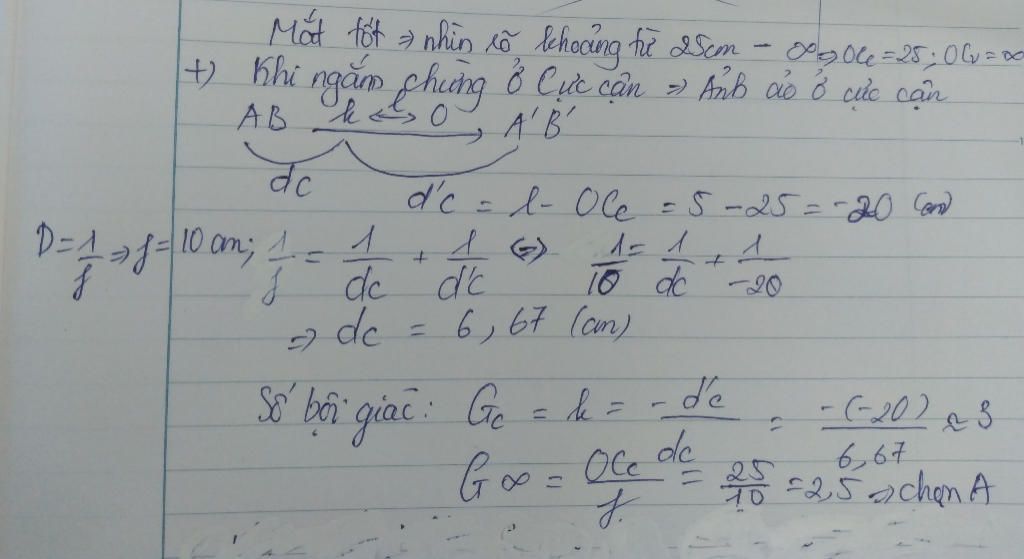 Mắt tốt ⇒ nhìn rõ khoảng từ 25cm - ∞ ⇒ OCc = 25; OCv = ∞
+) Khi ngắm chừng ở Cực cận ⇒ Ảnh ảo ở cực cận
l
AB k ↔ O → A'B'
dc
d'c = l - OCc = 5 - 25 = -20 (cm)
D = 1/f ⇒ f = 10 cm; 1/f = 1/dc + 1/d'c ⇔ 1/10 = 1/dc + 1/-20
⇒ dc = 6,67 (cm)
Số bội giác: Gc = k = -d'c/dc = -(-20)/6,67 ≈ 3
G∞ = OCc/f = 25/10 = 2,5 ⇒ chọn A